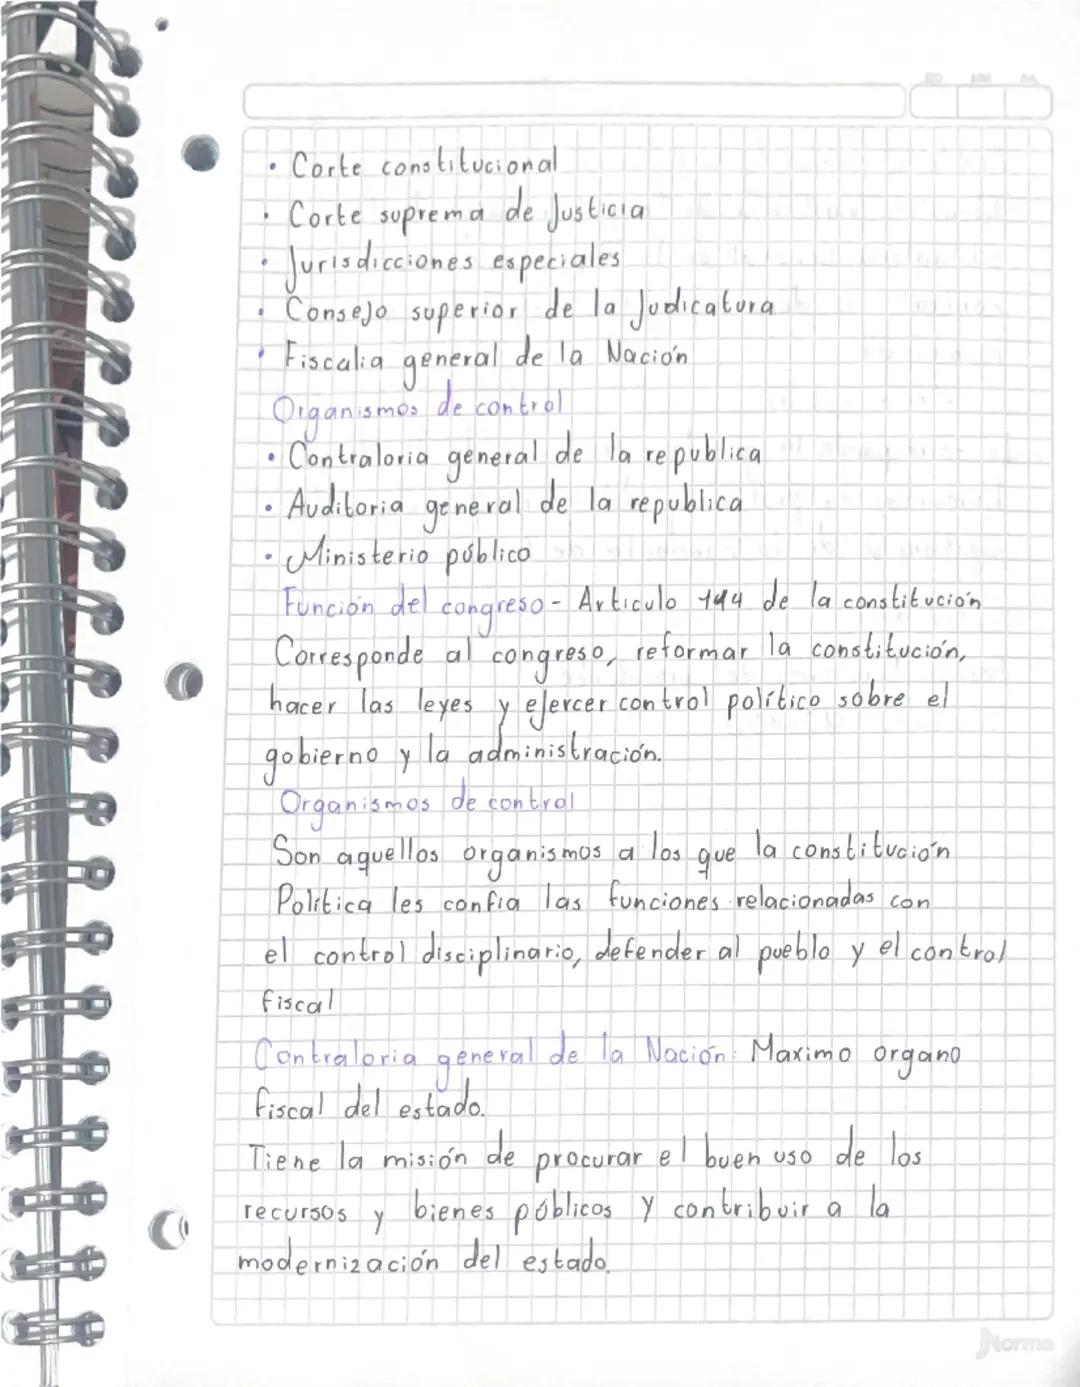 DD MM AA
• Corte constitucional
• Corte suprema de Justicia
• Jurisdicciones especiales
• Consejo superior de la Judicatura
• Fiscalia general de la Nación
Organismos de control
• Contraloria general de la republica
• Auditoria general de la republica
• Ministerio público
Función del congreso - Articulo 144 de la constitución
Corresponde al congreso, reformar la constitución,
hacer las leyes y ejercer control político sobre el
gobierno y la administración.
Organismos de control
Son aquellos organismos a los que la constitución
Politica les confia las funciones relacionadas con
el control disciplinario, defender al pueblo y el control
fiscal
Contraloria general de la Nación: Maximo organo
fiscal del estado.
Tiene la misión de procurar el buen uso de los
recursos y bienes públicos y contribuir a la
modernización del estado.
Norma